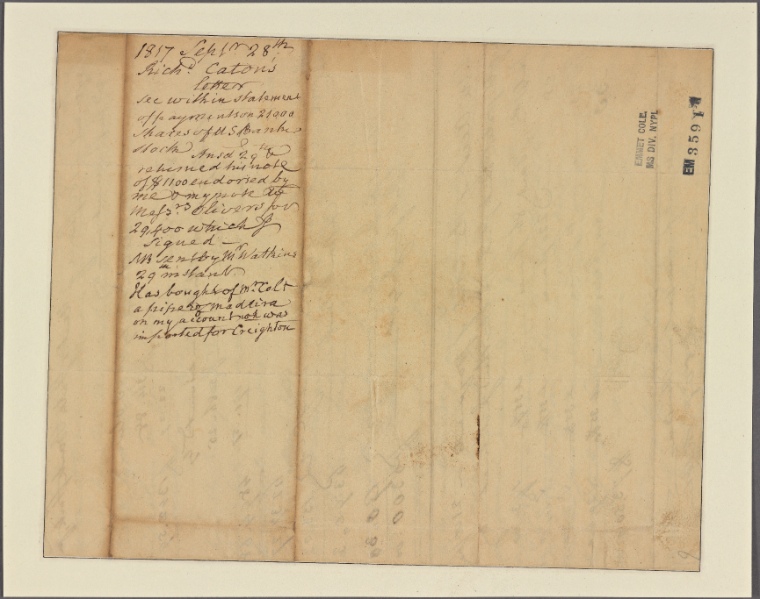 1817 Septr 28th
Richd. Caton's
letter
see within statement
of payments on 21000
shares of U S Bank
stock
Ansd 29th &
returned his note
of $1100 endorsed by
me & my note to
Messrs Olivers for
29,400 which I
signed —
NB sent by Mr Watkins
29th instant
Has bought of Mr. Colt
a pipe of madeira
on my account was
imported for Creighton
EMMET COLL.
MS DIV. NYPL
EM 3591